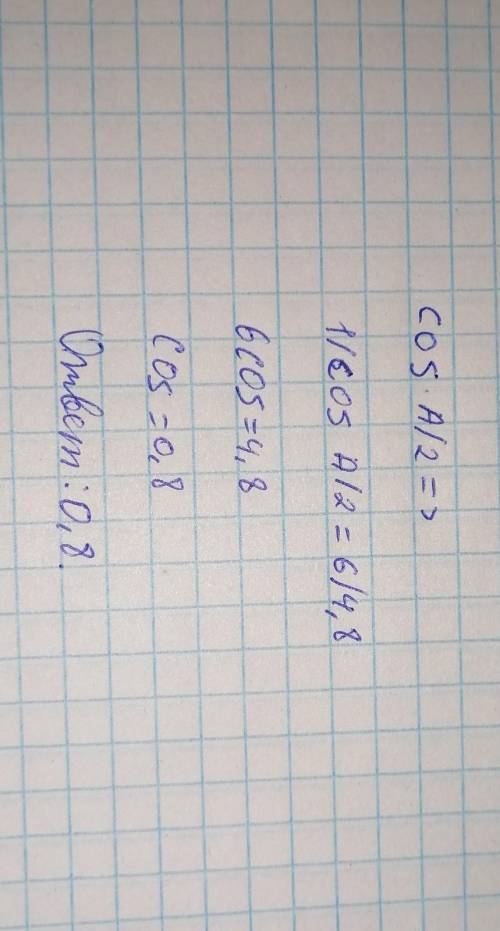 cos·A/2 =>
1/cos A/2 = 6/4,8
6cos=4,8
cos=0,8
Ответ:0,8.